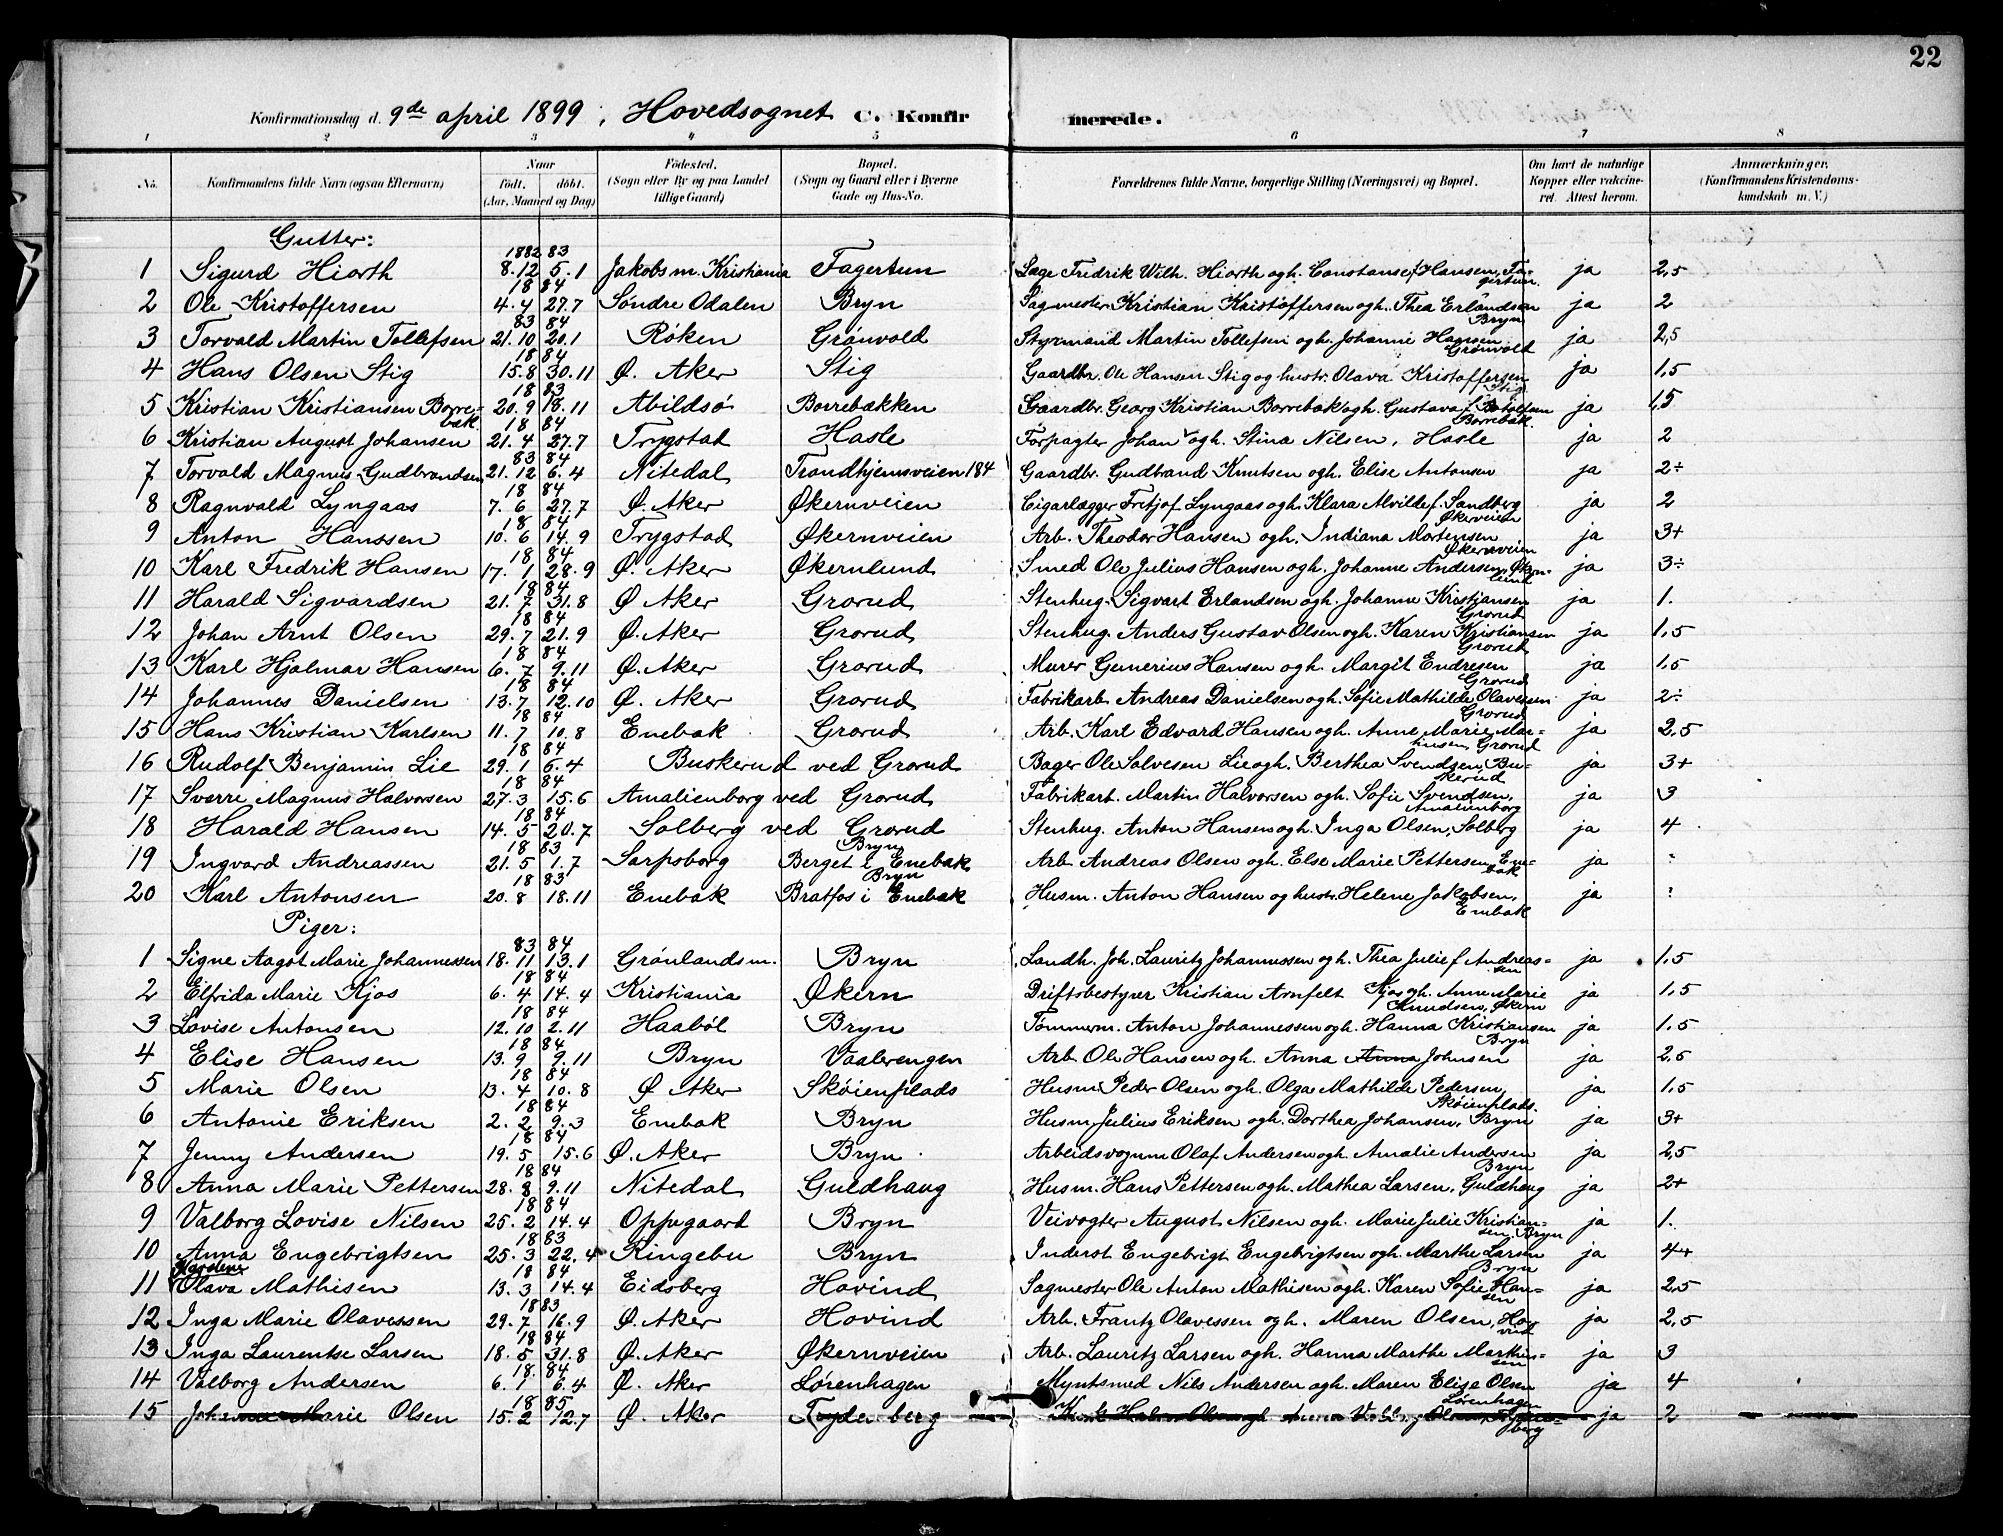 22
Konfirmationsdag d. 9de april 1899, Hovedsognet C. Konfirmerede.
1 2 3 4 5 6 7 8
No. Konfirmandens fulde Navn (ogsaa Efternavn) Naar født. døbt. (Aar, Maaned og Dag) Fødested. (Sogn eller By og paa Landet tillige Gaard) Bopæl. (Sogn og Gaard eller i Byerne Gade og Hus-No. Forældrenes fulde Navne, borgerlige Stilling (Næringsvei) og Bopæl. Om havt de naturlige Kopper eller vakcineret. Attest herom. Anmærkninger. (Konfirmandens Kristendomskundskab m. V.)
Gutter:
1 Sigurd Hiorth 1882 8.12 83 5.1 Jakobsm. Kristiania Fagertun Læge Fredrik Wilh. Hiorth og h. Constanse f Hansen, Fagertun. ja 2,5
2 Ole Kristoffersen 18 84 4.4 27.7 Søndre Odalen Bryn Sagmester Kristian Kristoffersen og h. Thea Erlandsen Bryn ja 2
3 Torvald Martin Tollefsen 83 84 21.10 20.1 Røken Grønvold Styrmand Martin Tollefsen og h. Johanne Hansen Grønvold ja 2,5
4 Hans Olsen Stig 18 84 15.8 30.11 Ø. Aker Stig Gaardbr. Ole Hansen Stig og hustr. Olava Kristoffersen Stig ja 1,5
5 Kristian Kristiansen Borrebæk 18 83 20.9 18.11 Abildsø Borrebækken Gaardbr. Georg Kristian Borrebæk og h. Gustava f. Borrebæk. ja 1,5
6 Kristian August Johansen 18 84 21.4 27.7 Trygstad Hasle Forpagter Johan og h. Stina Nilsen, Hasle ja 2
7 Torvald Magnus Gudbrandsen 83 84 21.12 6.4 Nitedal Trondhjemsveien 184 Gaardbr. Gudbrand Knutsen og h. Elise Antonsen ja 2÷
8 Ragnvald Lyngaas 18 84 7.6 27.7 Ø. Aker Økernveien Cigarlægger Fritjof Lyngaas og h. Klara Alvilde f. Sandberg Økerveien ja 2
9 Anton Hanssen 18 84 10.6 14.9 Trygstad Økernveien Arb. Theodor Hansen og h. Indiana Mortensen Økernveien ja 3+
10 Karl Fredrik Hansen 18 84 17.1 28.9 Ø. Aker Økernlund Smed Ole Julius Hansen og h. Johanne Andersen, Økernlund ja 3÷
11 Harald Sigvardsen 18 84 21.7 31.8 Ø Aker Grorud Stenhug. Sigvart Erlandsen og h. Johanne Kristiansen Grorud ja 1.
12 Johan Arnt Olsen 18 84 29.7 21.9 Ø. Aker Grorud Stenhug. Anders Gustav Olsen og h. Karen Kristiansen Grorud ja 1,5
13 Karl Hjalmar Hansen 18 84 6.7 9.11 Ø. Aker Grorud Murer Gunerius Hansen og h. Margit Endresen Grorud ja 1,5
14 Johannes Danielsen 18 84 13.7 12.10 Ø. Aker Grorud Fabrikarb. Andreas Danielsen og h. Sofie Mathilde Olavessen Grorud ja 2÷
15 Hans Kristian Karlsen 18 84 11.7 10.8 Enebak Grorud Arb. Karl Edvard Hansen og h. Anne Marie Markusen, Grorud ja 2,5
16 Rudolf Benjamin Lie 18 84 29.1 6.4 Buskerud ved Grorud Bager Ole Salvesen Lie og h. Berthea Svendsen, Buskerud ja 3+
17 Sverre Magnus Halvorsen 18 84 27.3 15.6 Amalienborg ved Grorud Fabrikarb. Martin Halvorsen og h. Sofie Svendsen, Amalienborg ja 3
18 Harald Hansen 18 84 14.5 20.7 Solberg ved Grorud Stenhug. Anton Hansen og h. Inga Olsen, Solberg ja 4
19 Ingvard Andreassen 18 83 21.5 1.7 Sarpsborg Bryn Berget i Enebak Arb. Andreas Olsen og h. Else Marie Pettersen, Enebak ja :
20 Karl Antonsen 18 83 20.8 18.11 Enebak Bryn Bratfos i Enebak Husm. Anton Hansen og hustr. Helene Jakobsen, Enebak ja :
Piger:
1 Signe Aagot Marie Johannessen 83 84 18.11 13.1 Grønlandsm. Bryn Landh. Joh. Lauritz Johannessen og h. Thea Julie f Andreassen ja 1,5
2 Elfrida Marie Kjos 18 84 6.4 14.4 Kristiania Økern Driftsbestyrer Kristian Arnfelt Kjos og h. Anne Marie Knudsen, Økern ja 1,5
3 Lovise Antonsen 18 84 12.10 2.11 Haabøl Bryn Tømmerm. Anton Johannessen og h. Hanna Kristiansen Bryn ja 1,5
4 Elise Hansen 18 84 13.9 9.11 Bryn Vaalerengen Arb. Ole Hansen og h. Anna Anna Johnsen ja 2,5
5 Marie Olsen 18 84 13.4 10.8 Ø Aker Skøienplads Husm. Peder Olsen og h. Olga Mathilde Pedersen, Skøienplads. ja 1,5
6 Antonie Eriksen 18 84 2.2 9.3 Enebak Bryn Husm. Julius Eriksen og h. Dorthea Johansen, Bryn ja 3+
7 Jenny Andersen 18 84 19.5 15.6 Ø. Aker Bryn Arbeidsvognm Olaf Andersen og h. Amalie Andersen Bryn ja 2,5
8 Anna Marie Pettersen 18 84 28.8 9.11 Nitedal Guldhaug Husm. Hans Pettersen og h. Mathea Larsen, Guldhaug ja 2+
9 Valborg Lovise Nilsen 18 84 25.2 14.4 Oppegaard Bryn Veivogter August Nilsen og h. Marie Julie Kristiansen, Bryn ja 1.
10 Anna Engebrigtsen 18 83 25.3 22.4 Ringebu Bryn Inderst Engebrigt Engebrigtsen og h. Marthe Larsen Bryn ja 4+
11 Karolene Olava Mathisen 18 84 13.3 14.4 Eidsberg Hovind Sagmester Ole Anton Mathisen og h. Karen Sofie Hansen ja 2,5
12 Inga Marie Olavessen 18 83 29.7 16.9 Ø. Aker Hovind Arb. Frantz Olavessen og h. Maren Olsen, Hovind ja 2,5
13 Inga Laurentse Larsen 18 84 18.5 31.8 Ø. Aker Økernveien Arb. Lauritz Larsen og h. Hanna Marthe Marthinsen ja 3
14 Valborg Andersen 18. 84 6.1 6.4 Ø. Aker Lørenhagen Myntsmed Nils Andersen og h. Maren Elise Olsen Lørenhagen ja 4
15 Johanne Marie Olsen 18 85 15.2 12.7 Ø. Aker ja 2